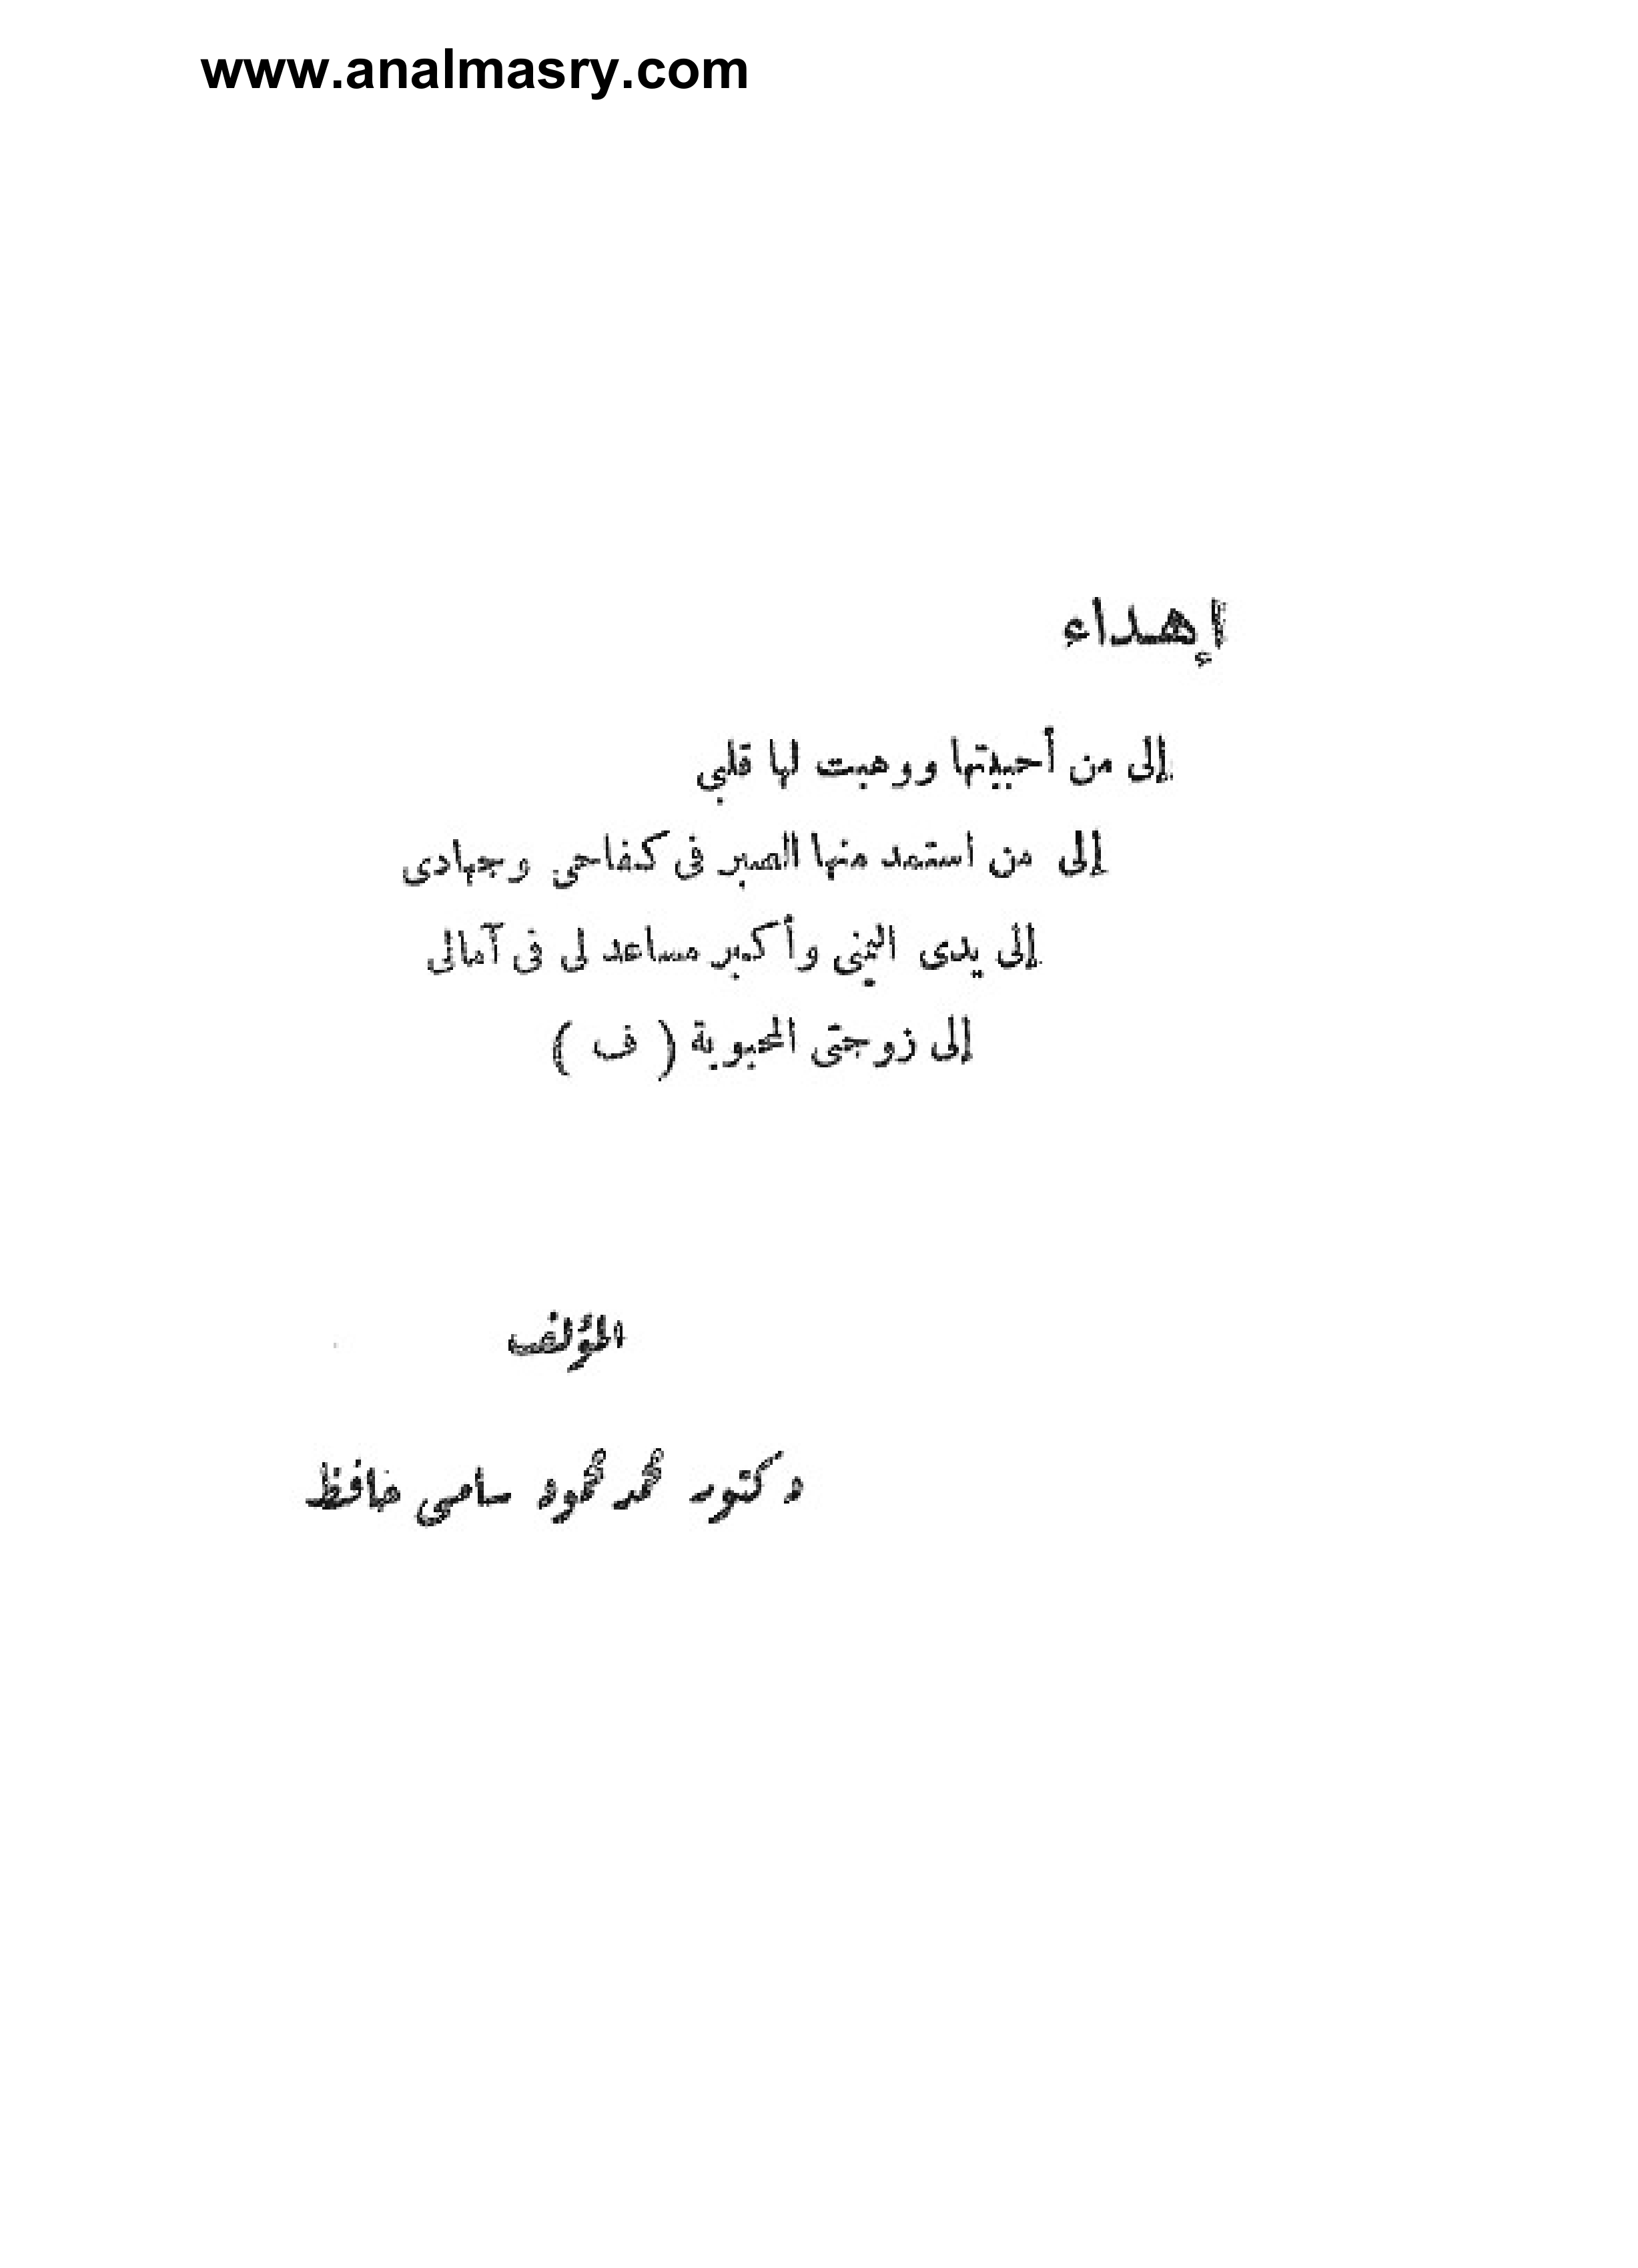 www.analmasry.com
إهداء
إلى من أحببتها ووهبت لها قلبي
إلى من استمد منها الصبر فى كفاحى وجهادى
إلى يدى اليمنى وأكبر مساعد لى فى آمالى
إلى زوجتى المحبوبة ( ف )
المؤلف
دكتور محمد محمود سامى حافظ